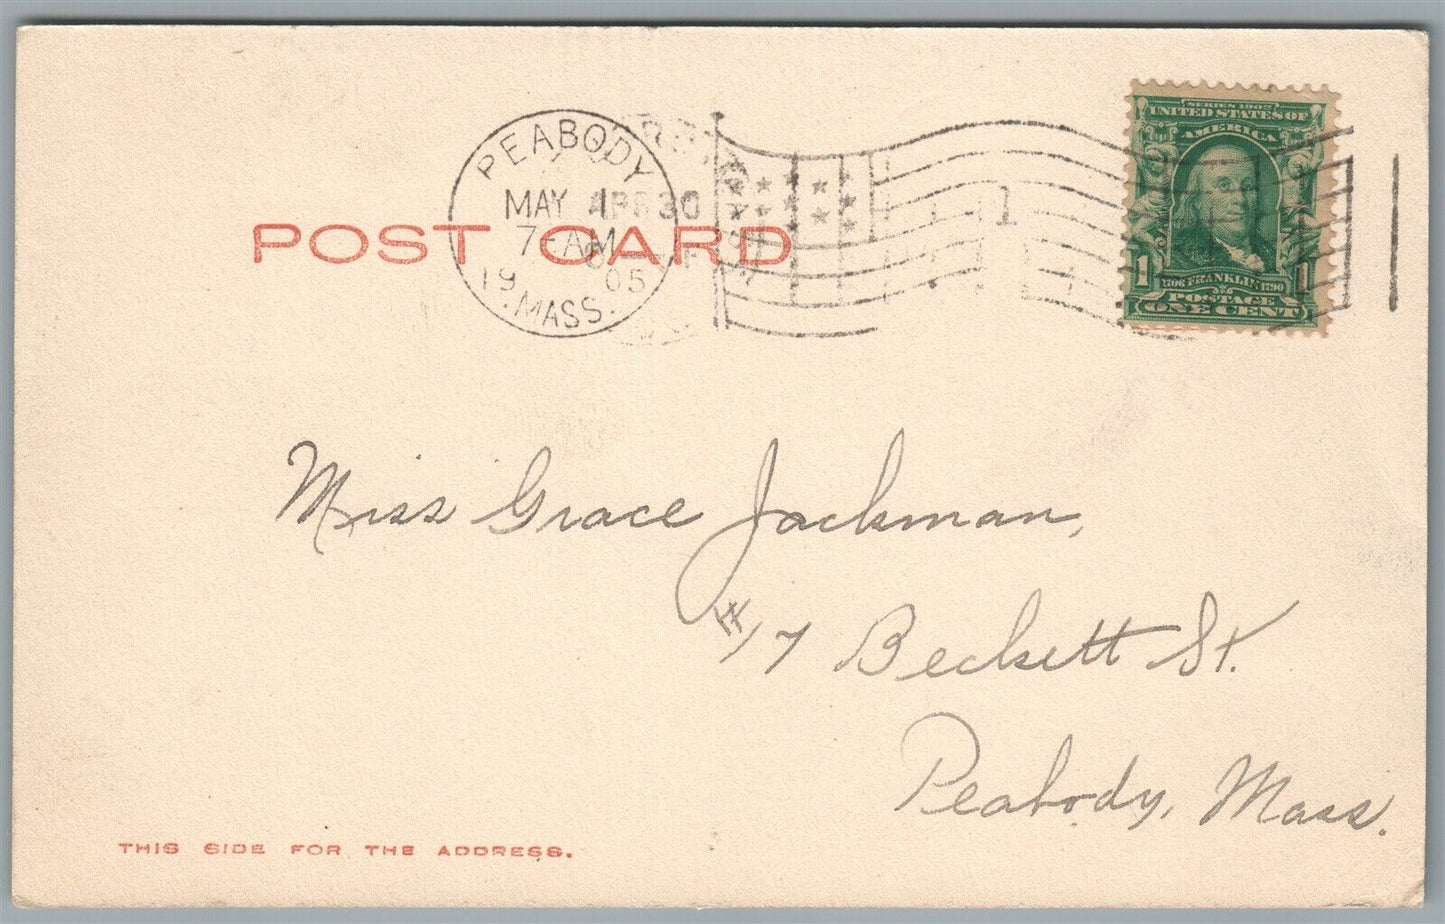 PEABODY
MAY 1
7-AM
19 05
MASS.
APR 30
1
POST CARD
SERIES 1902
UNITED STATES OF
AMERICA
1 1
1706 FRANKLIN 1790
POSTAGE
ONE CENT
Miss Grace Jackman,
#17 Beckett St.
Peabody, Mass.
THIS SIDE FOR THE ADDRESS.